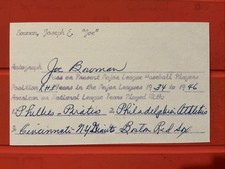 Bowman, Joseph E "Joe"
Autograph Joe Bowman
was an Present Major League Baseball Player
Position RHP Years in the Major Leagues 1934 to 1946
American or National League Teams Played With:
1 Phillies - Pirates 2 Philadelphia Athletics
3 Cincinnati - NY Giants Boston Red Sox